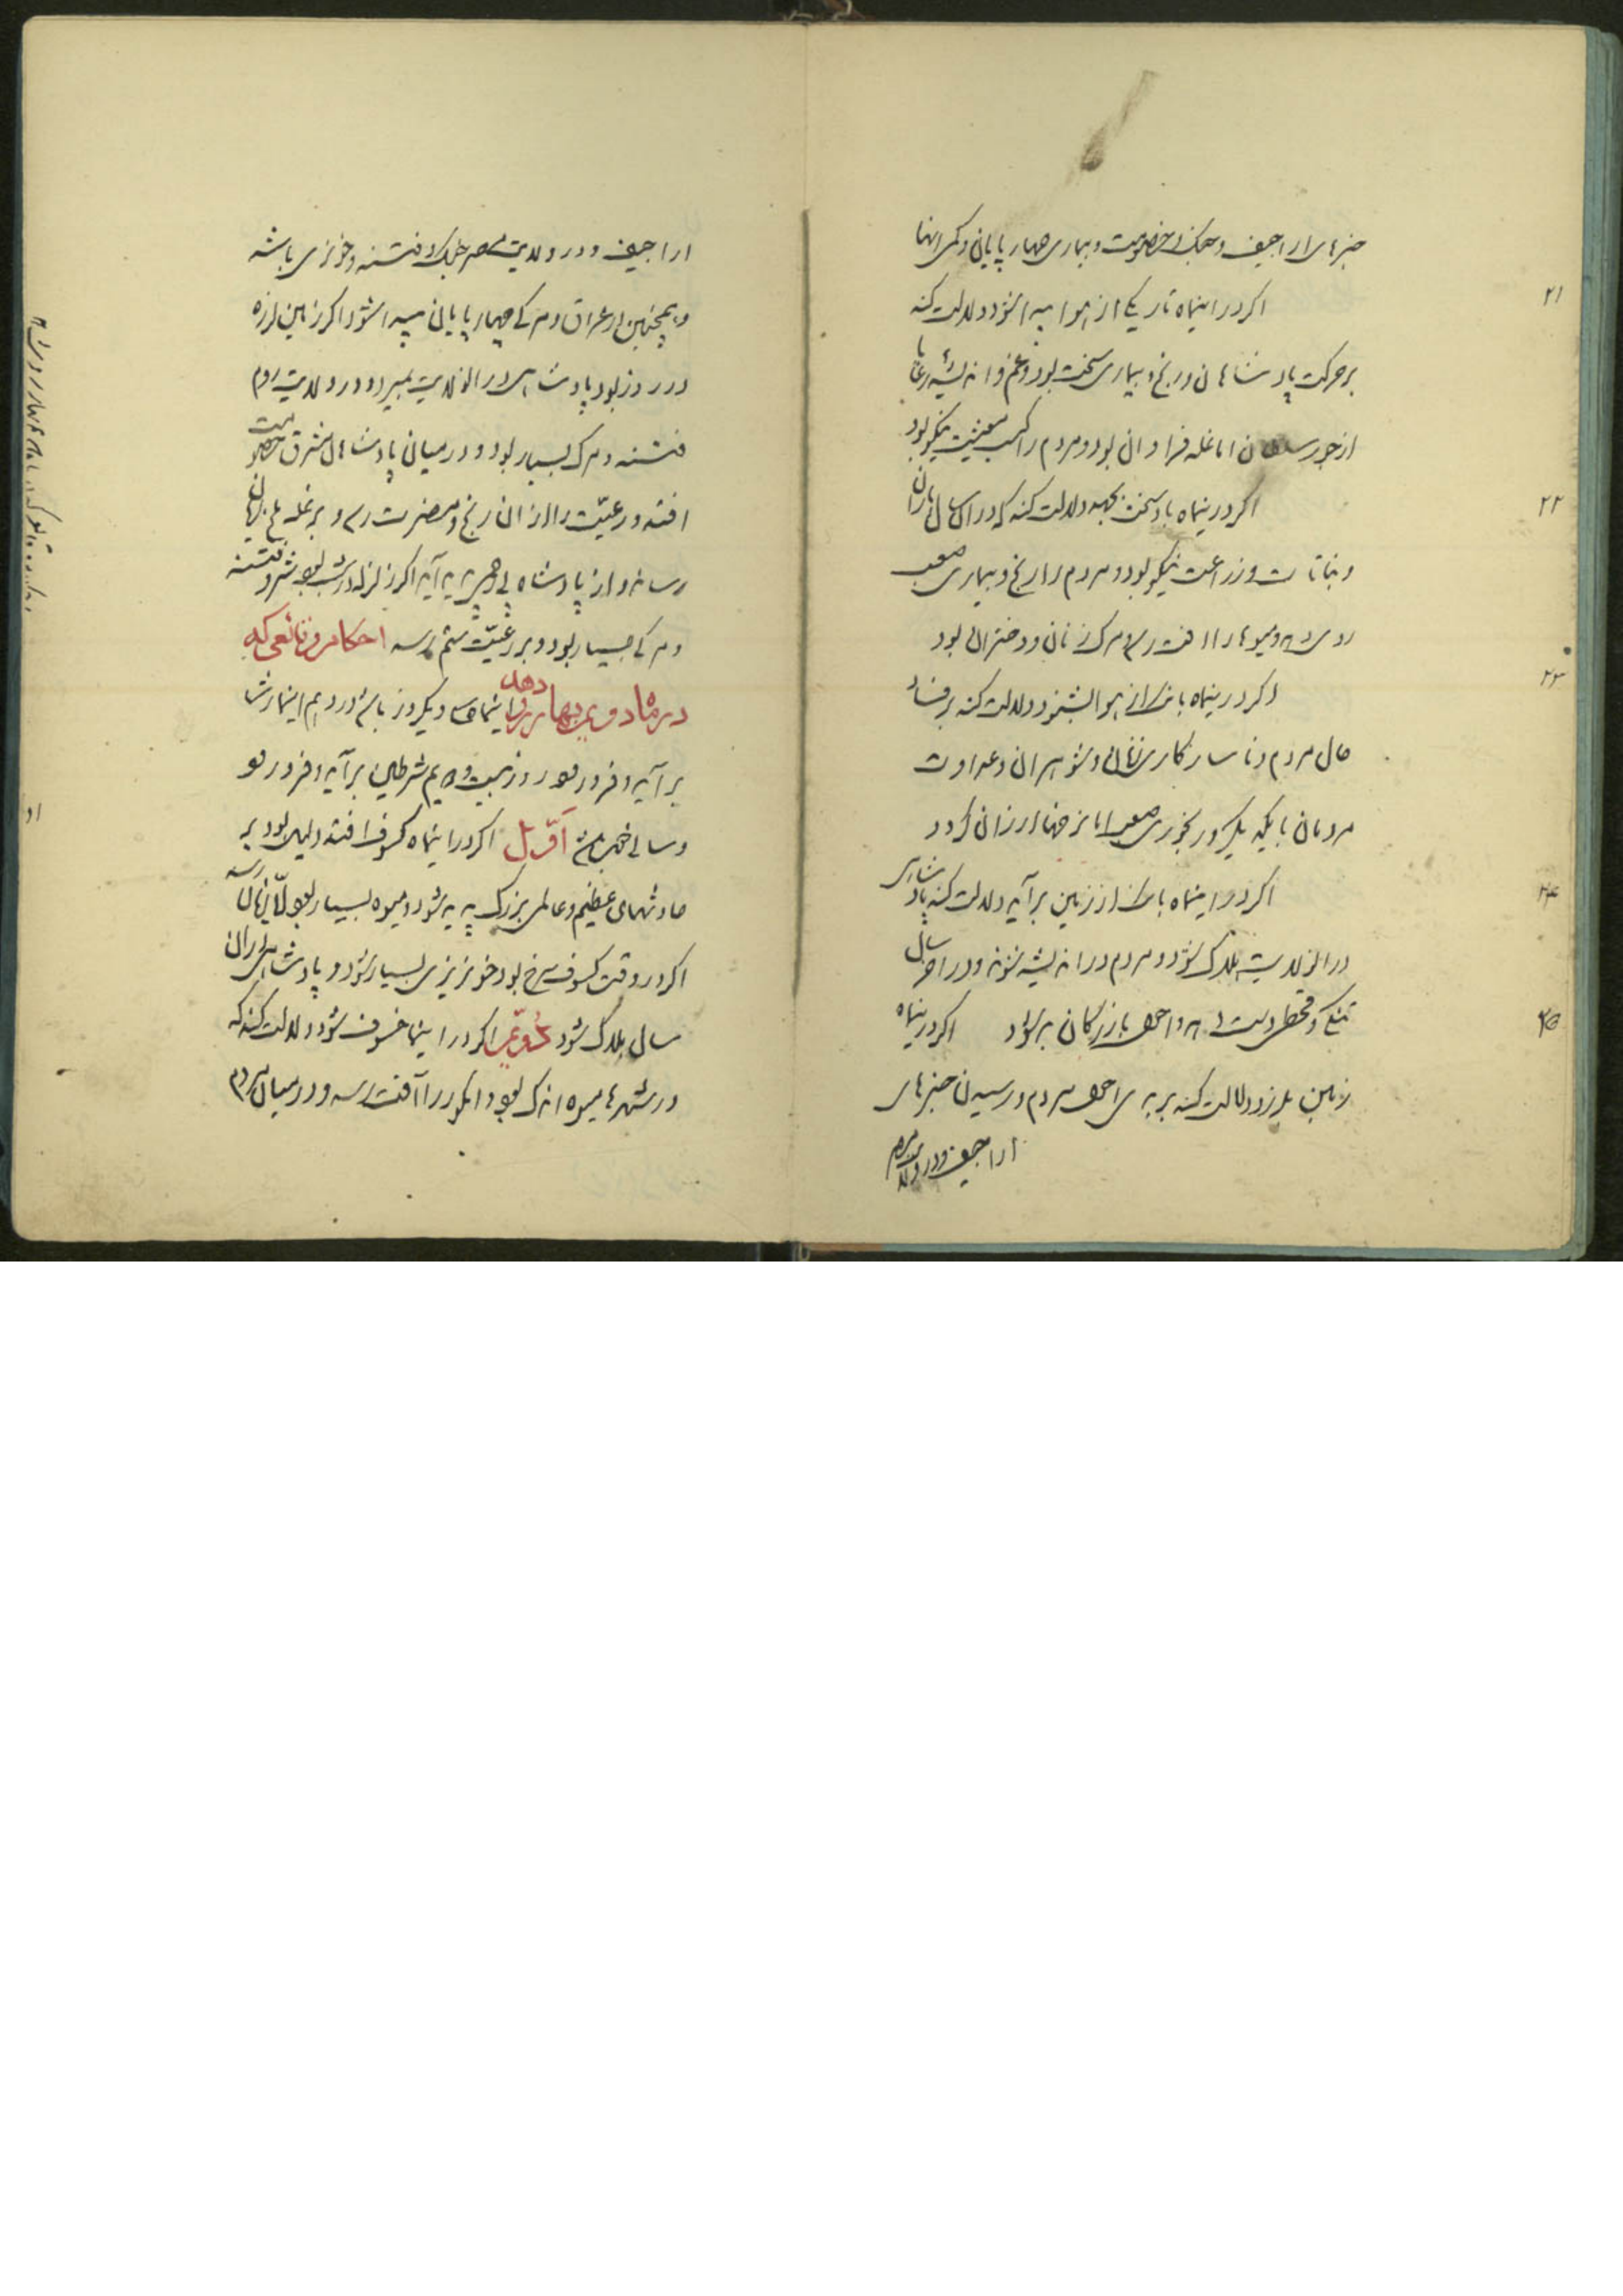 خبرهای اراجیف و جنک و خصومت و بیماری چهار پایان و کمی انها
۲۱
اکر در اینماه تاریکی از هوا پیدا شود دلالت کند
بر حرکت پادشاهان و رنج و بیماری سخت بود و غم و اندیشه رعایا
از جور سلطان اما غله فراوان بود و مردم را کسب معیشت نیکو بود
۲۲
اکر درینماه باد سخت بجهد دلالت کند که در ان سال باران
و نباتات و زراعت نیکو بود و مردم را رنج و بیماری صعب
روی دهد و میوها را افت رسد و مرک زنان و دختران بود
۲۳
اکر درینماه بانک از هوا بشنود دلالت کند بر فساد
حال مردم و ناسازکاری زنان و شوهران و عداوت
مردمان با یکدیکر و رنجوری صعب اما نرخها ارزان کردد
۲۴
اکر در اینماه بانک از زمین برآید دلالت کند پادشاهی
در ان ولایت هلاک شود و مردم در اندیشه شوند و در اخر سال
تنکی و قحطی دست دهد و احوال بازرکان بد شود اکر درینماه
۲۵
زمین بلرزد دلالت کند بر بدی احوال مردم و رسیدن خبرهای
اراجیف و در ولایت
اراجیف و در ولایت مصر جنک و فتنه و خونریزی باشد
و همچنین در عراق و مرکی چهار پایان پیدا شود اکر زمین لرزه
در روز بود پادشاهی در ان ولایت بمیرد و در ولایت روم
فتنه و مرک بسیار بود و در میان پادشاهان مشرق خصومت
افتد و رعیت را از ان رنج و مضرت رسد و بر غله ملخ زیان
رساند و از پادشاه بی‌رحمی پدید آید اکر زلزله در شب بود شر و فتنه
و مرکی بسیار بود و بر رعیت ستم رسد احکام وقائعی که
در ماه دویم بهار روی دهد اینماه سی و یکروز باشد و در دهم اینماه رشا
برآید و فرو رود و روز بیست و سیم شرطین برآید و فرو رود
اول اکر در اینماه کسوف افتد دلیل بود بر
حادثهای عظیم و عالمی بزرک پدید شود و میوه بسیار بود
اکر در وقت کسوف سرخ بود خونریزی بسیار شود و پادشاهی در ان
سال هلاک شود دویم اکر در اینماه خسوف شود دلالت کند که
در شهرها میوه اندک بود و انکور را آفت رسد و در میان مردم